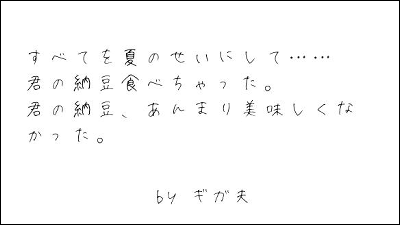 すべてを夏のせいにして……
君の納豆食べちゃった。
君の納豆、あんまり美味しくな
かった。
by ギガ夫